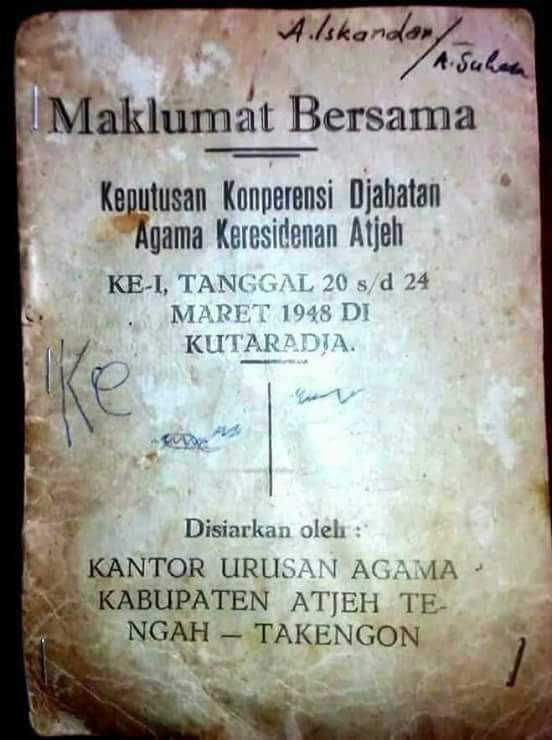 A. Iskandar/
A. Suhen
Maklumat Bersama
Keputusan Konperensi Djabatan
Agama Keresidenan Atjeh
KE-I, TANGGAL 20 s/d 24
MARET 1948 DI
KUTARADJA.
Ke
Disiarkan oleh :
KANTOR URUSAN AGAMA
KABUPATEN ATJEH TE-
NGAH — TAKENGON